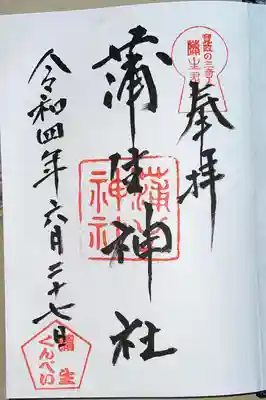 寛政の三奇人
蒲生君
奉拝
蒲生神社
蒲生
神社
令和四年六月二十七日
蒲生
くんぺい